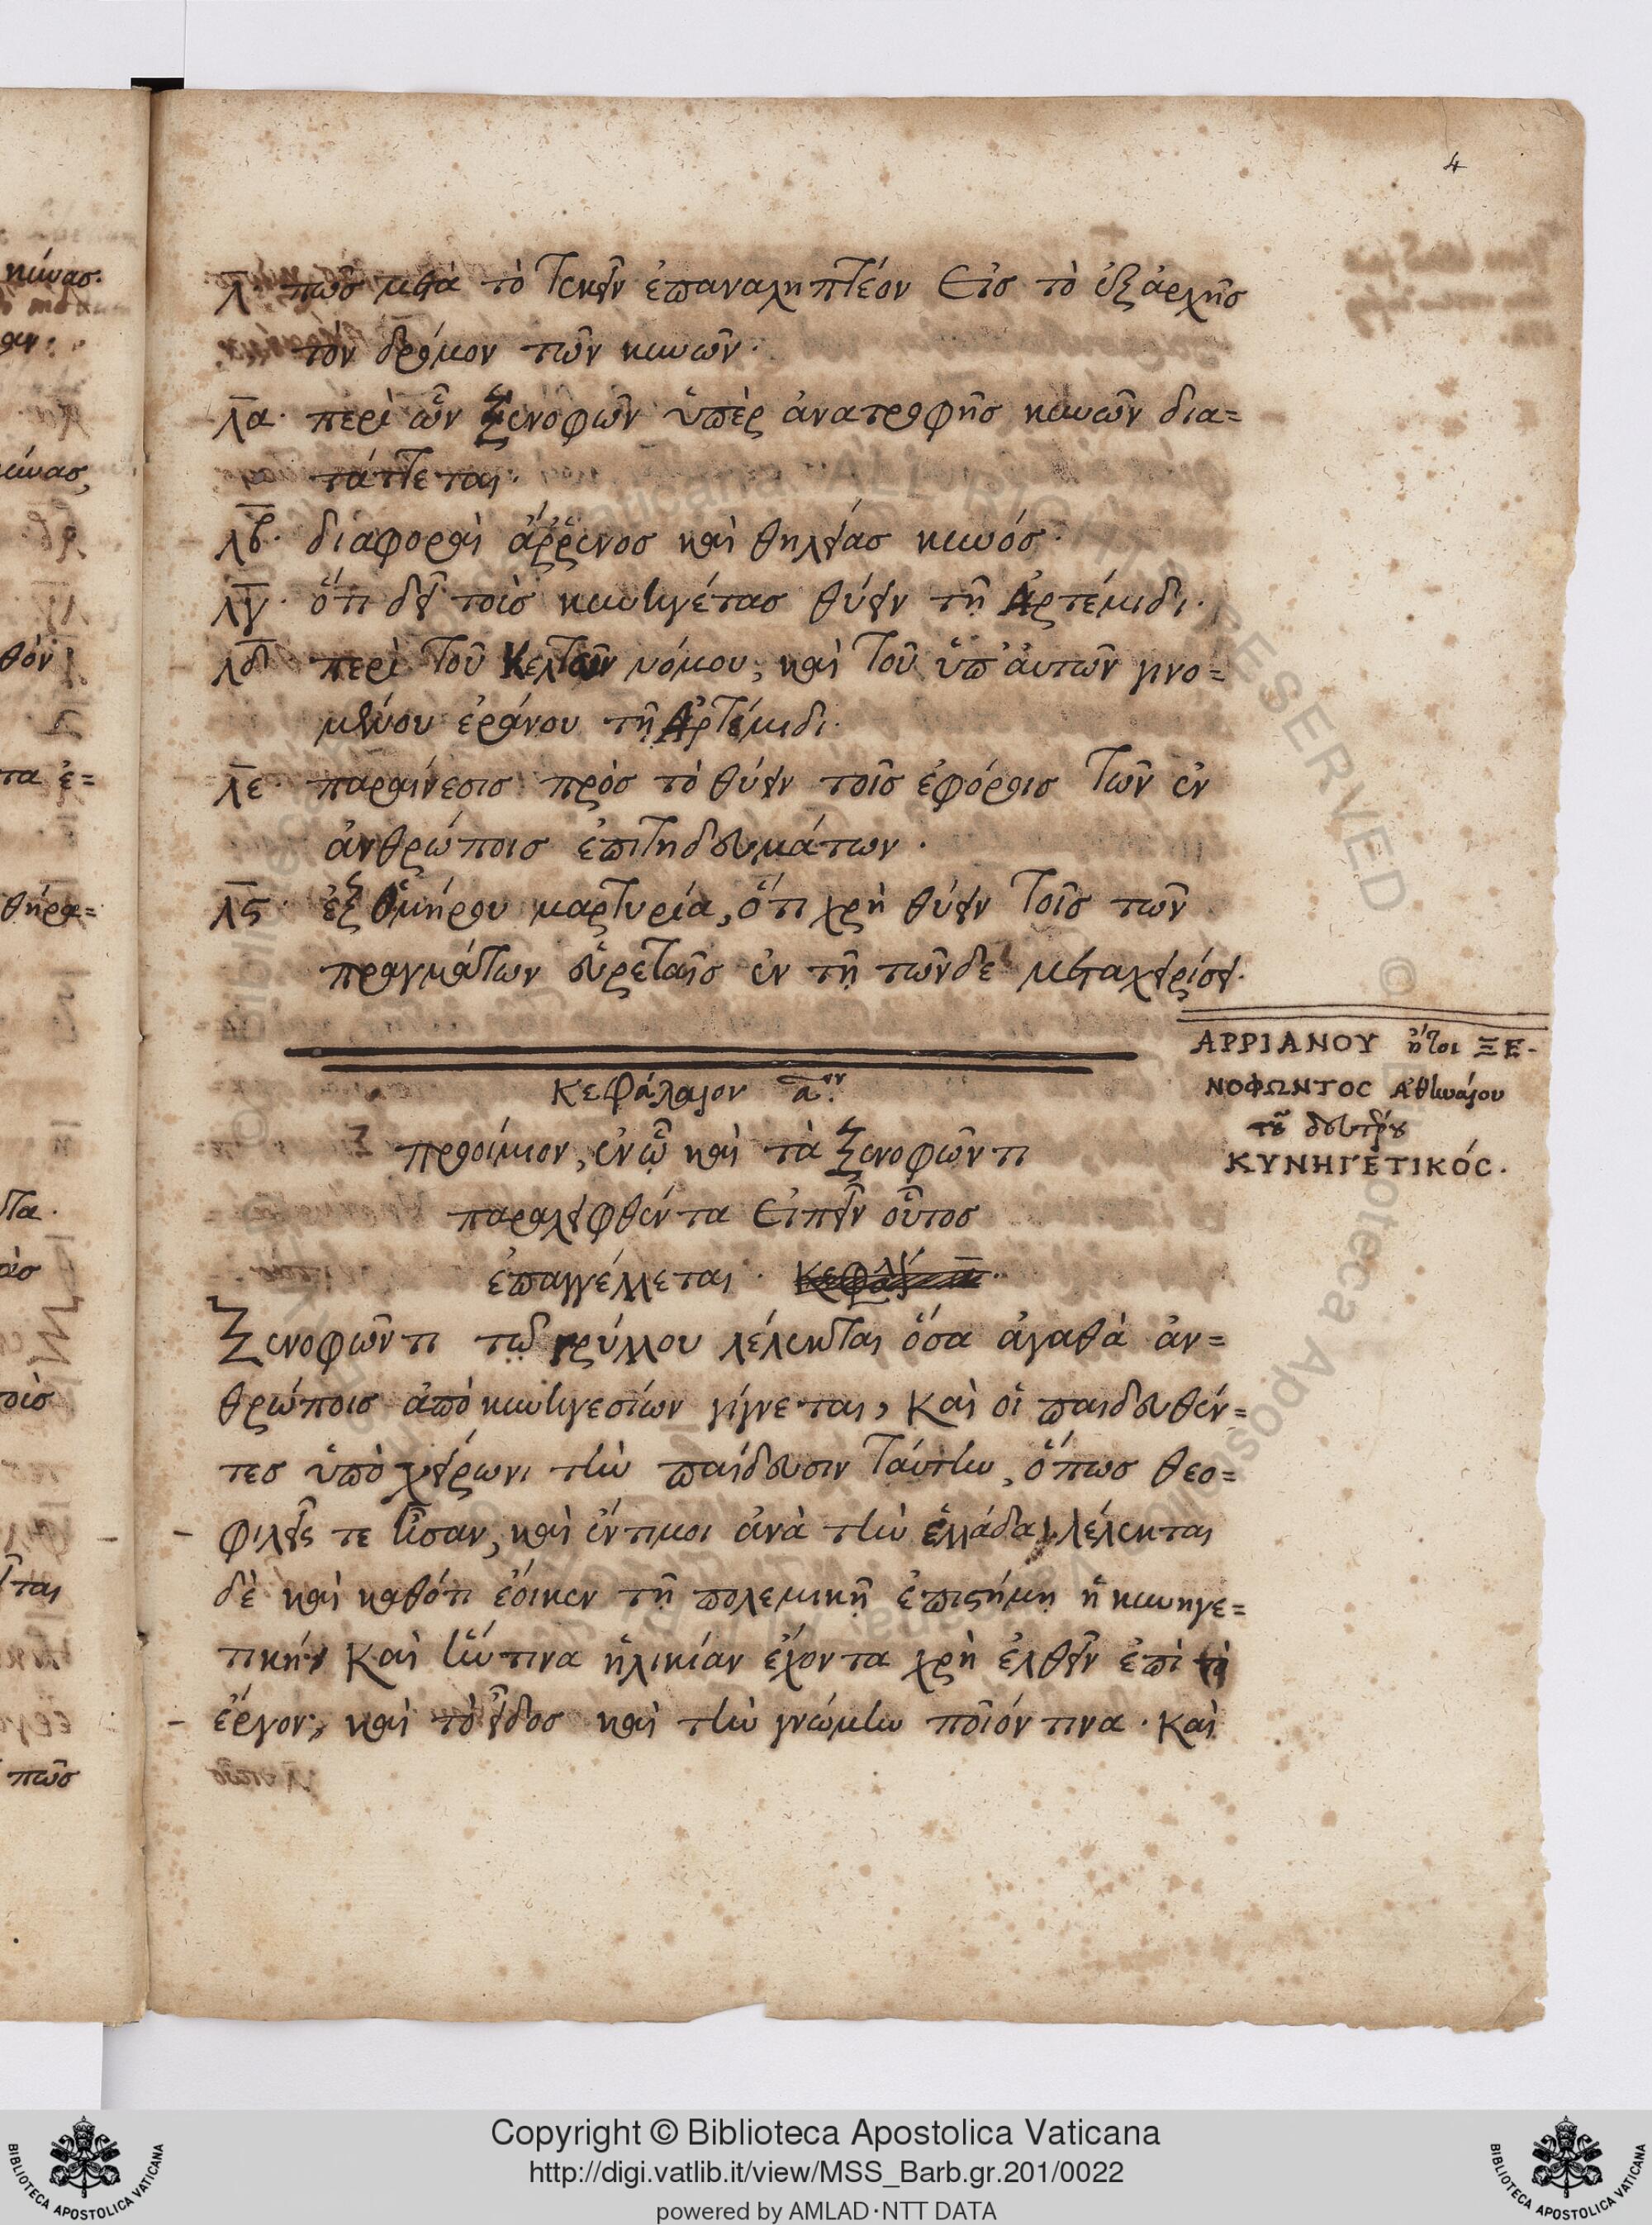 4
λ πῶς μετὰ τὸ τεκεῖν ἐπαναληπτέον εἰς τὸ ἐξἀρχῆς
τὸν δρόμον τῶν κυνῶν.
λα. περὶ ὧν Ξενοφῶν ὑπὲρ ἀνατροφῆς κυνῶν δια=
τάττεται.
λβ. διαφοραὶ ἄῤῥενος καὶ θηλείας κυνός.
λγ. ὅτι δεῖ τοὶς κυνηγέτας θύειν τῇ Ἀρτέμιδι.
λδ περὶ τοῦ Κελτῶν νόμου, καὶ τοῦ ὑπ' ἀυτῶν γινο=
μένου ἐράνου τῇ Ἀρτέμιδι.
λε. παραίνεσις πρὸς τὸ θύειν τοῖς ἐφόροις τῶν ἐν
ἀνθρώποις ἐπιτηδευμάτων.
λϛ. ἐξ Ὁμήρου μαρτυρία, ὅτι χρὴ θύειν τοῖς τῶν
πραγμάτων εὑρεταῖς ἐν τῇ τῶνδε μεταχειρίσει.
ΑΡΡΙΑΝΟΥ ἤτοι ΞΕ-
ΝΟΦΩΝΤΟC Ἀθηναίου
τοῦ δευτέρου
ΚΥΝΗΓΕΤΙΚÓC.
Κεφάλαιον α.ον
προοίμιον, ἐνᾧ καὶ τὰ Ξενοφῶντι
παραλειφθέντα εἰπεῖν οὗτος
ἐπαγγέλλεται.
Ξενοφῶντι τῷ γρύλλου λέλεκται ὅσα ἀγαθὰ ἀν=
θρώποις ἀπὸ κυνηγεσίων γίγνεται, καὶ οἱ παιδευθέν=
τες ὑπὸ χείρωνι τὴν παίδευσιν ταύτην, ὅπως θεο=
φιλεῖς τε ἦσαν, καὶ ἔντιμοι ἀνὰ τὴν ἑλλάδα, λέλεκται
δὲ καὶ καθότι ἔοικεν τῇ πολεμικῇ ἐπιστήμῃ ἡ κυνηγε=
τική. καὶ ἥντινα ἡλικίαν ἔχοντα χρὴ ἐλθεῖν ἐπὶ τὸ
ἔργον, καὶ τὸ εἶδος καὶ τὴν γνώμην ποῖόν τινα. καὶ
κύνας.
θόν
τα ἐ=
θήρα=
τα.
τοὶς
ται
πῶς
Copyright © Biblioteca Apostolica Vaticana
http://digi.vatlib.it/view/MSS_Barb.gr.201/0022
powered by AMLAD·NTT DATA
BIBLIOTECA APOSTOLICA VATICANA
BIBLIOTECA APOSTOLICA VATICANA